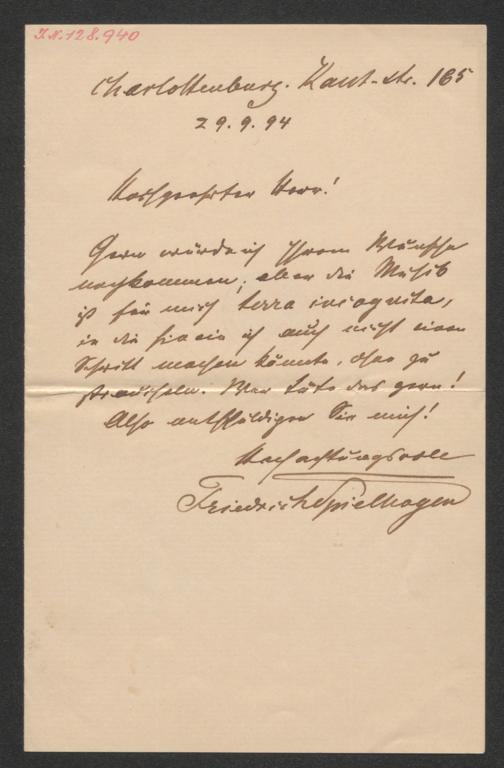 I.N. 128.940
Charlottenburg. Kant-Str. 165
29.9.94
Hochgeehrter Herr!
Gern würde ich Ihrem Wunsche
nachkommen; aber die Musik
ist für mich terra incognita,
in die hinein ich auch nicht einen
Schritt machen könnte, ohne zu
straucheln. Wer täte das gern!
Also entschuldigen Sie mich!
Hochachtungsvoll
Friedrich Spielhagen